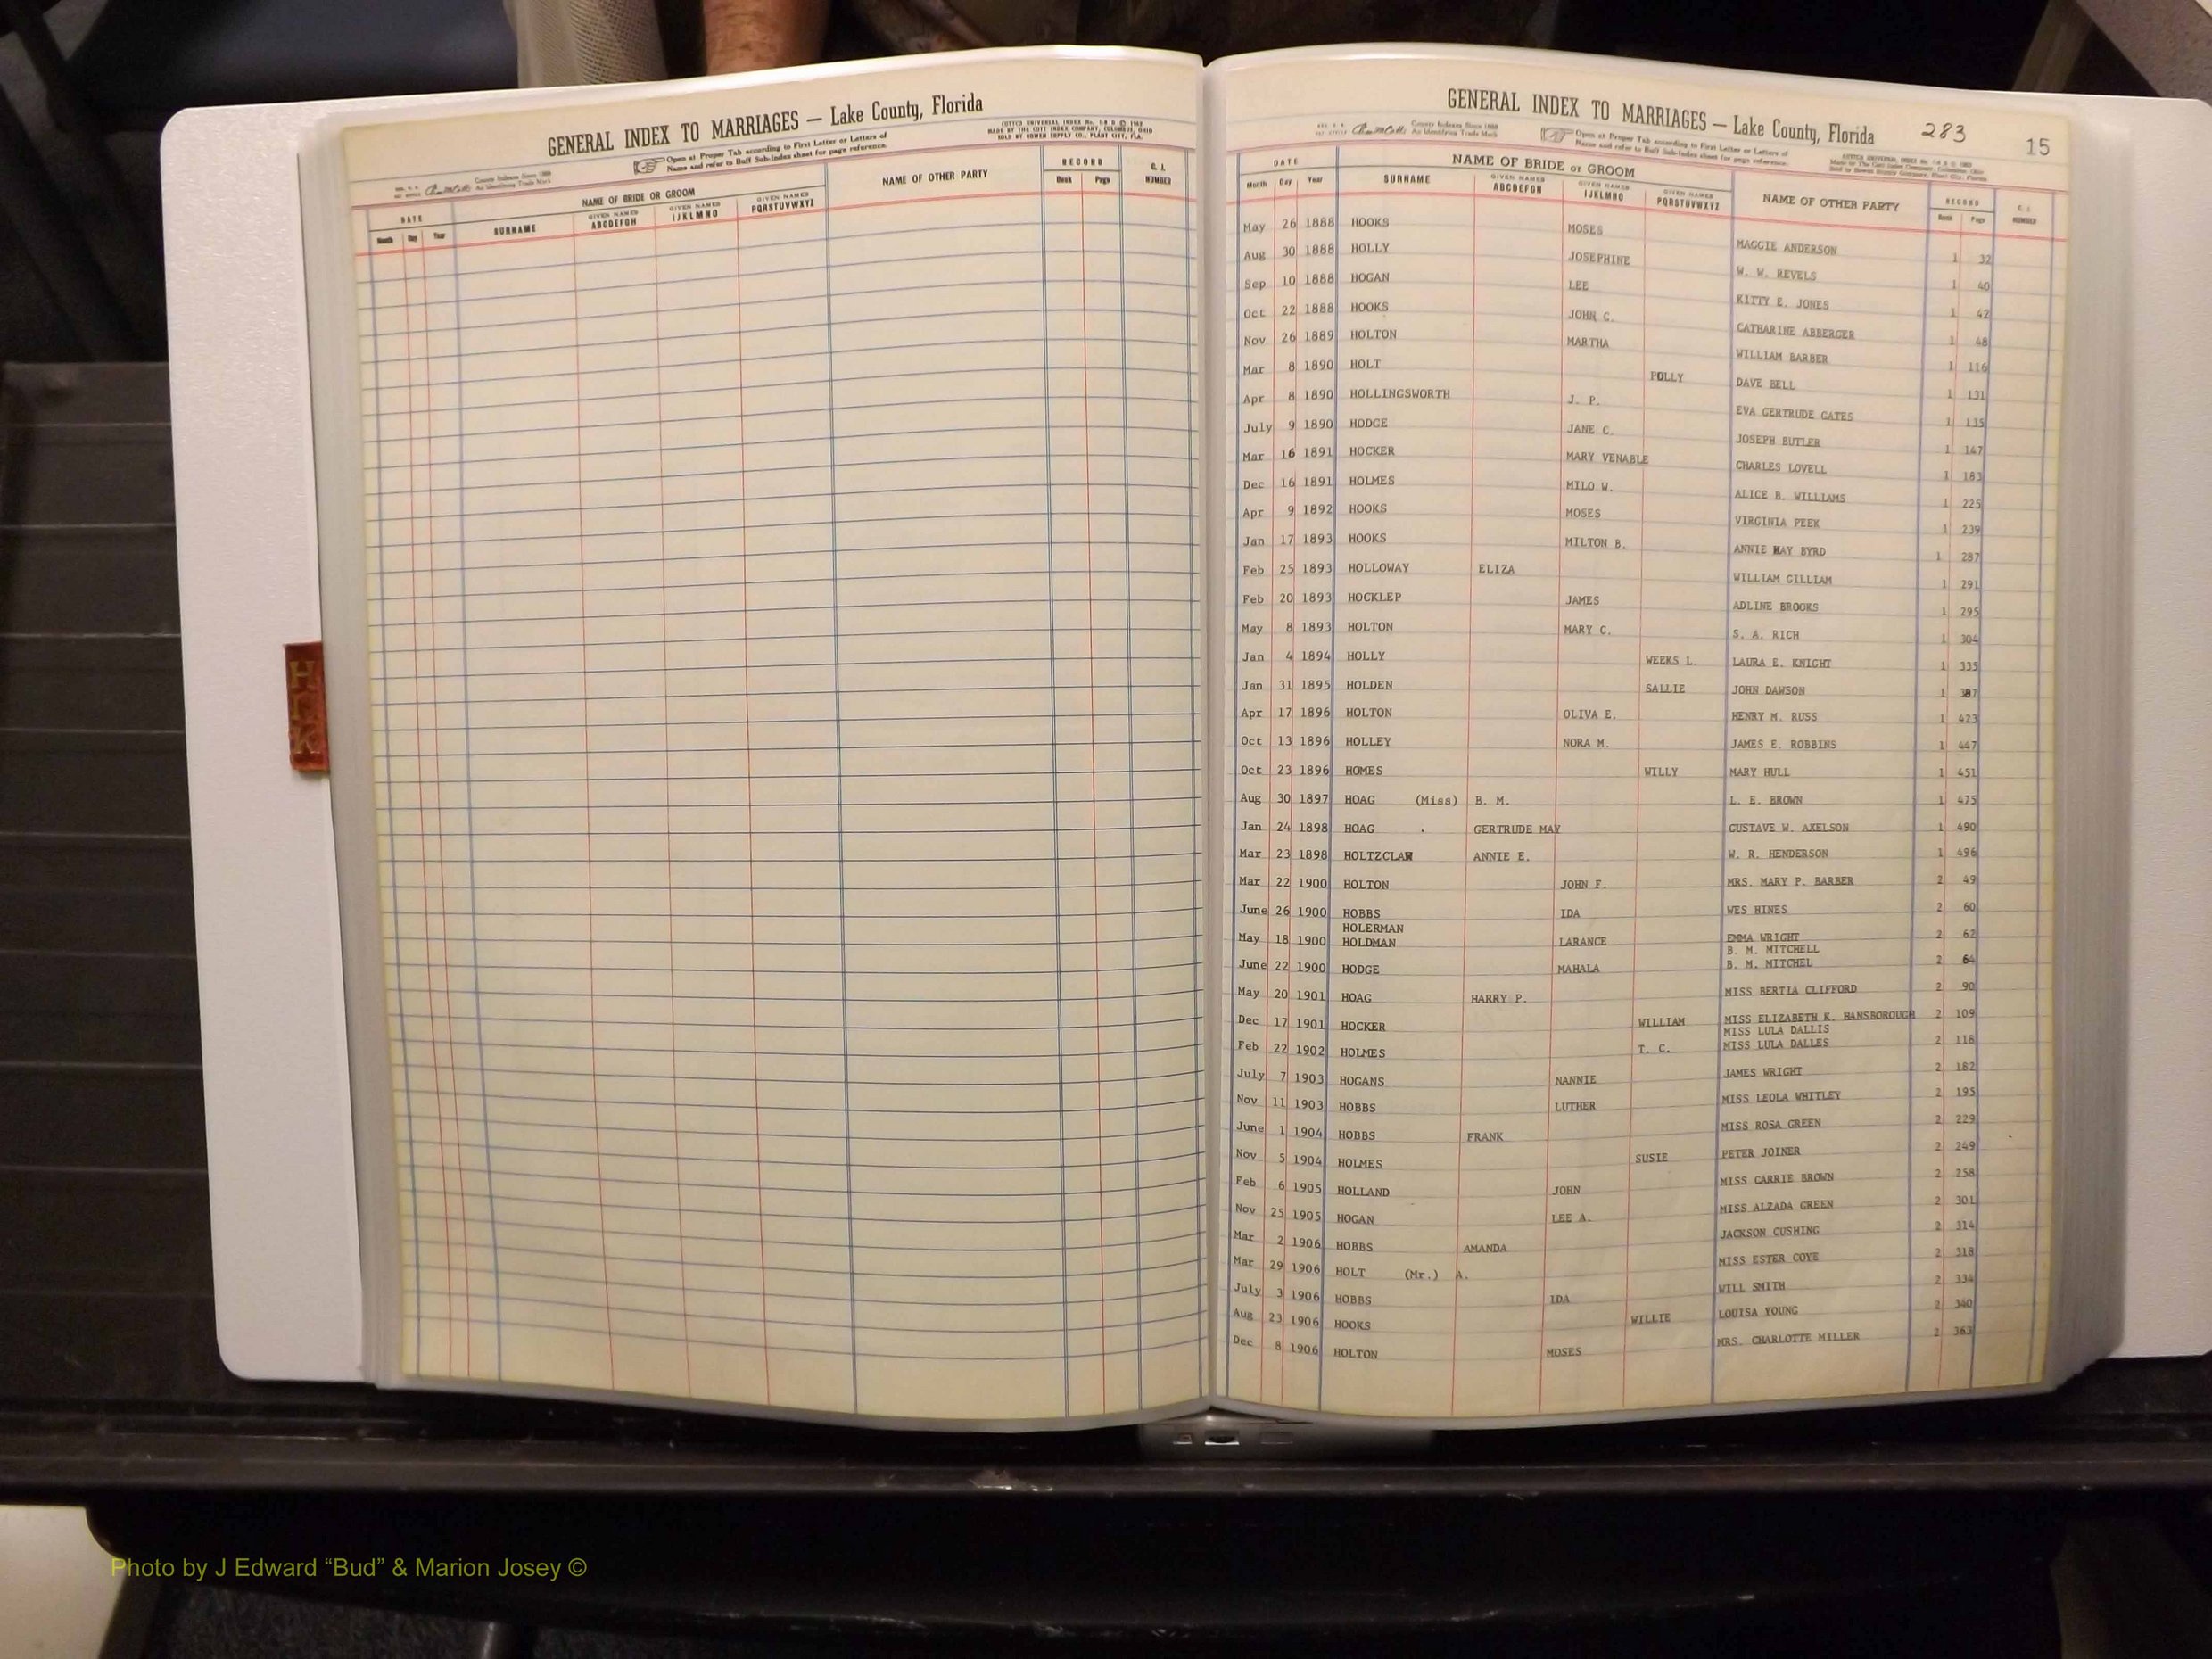 GENERAL INDEX TO MARRIAGES — Lake County, Florida
Open at Proper Tab according to First Letter or Letters of
Name and refer to Buff Sub-Index sheet for page reference.
COTTCO UNIVERSAL INDEX
MADE BY THE COTT INDEX COMPANY, COLUMBUS, OHIO
SOLD BY BOWEN SUPPLY CO., PLANT CITY, FLA.
County Indexes Since 1888
An Identifying Trade Mark
DATE NAME OF BRIDE OR GROOM NAME OF OTHER PARTY RECORD C. I. NUMBER
Month Day Year SURNAME GIVEN NAMES ABCDEFGH GIVEN NAMES IJKLMNO GIVEN NAMES PQRSTUVWXYZ Book Page
H
I
K
GENERAL INDEX TO MARRIAGES — Lake County, Florida 283 15
County Indexes Since 1888
An Identifying Trade Mark
Open at Proper Tab according to First Letter or Letters of
Name and refer to Buff Sub-Index sheet for page reference.
DATE NAME OF BRIDE or GROOM NAME OF OTHER PARTY RECORD C. I. NUMBER
Month Day Year SURNAME GIVEN NAMES ABCDEFGH GIVEN NAMES IJKLMNO GIVEN NAMES PQRSTUVWXYZ Book Page
May 26 1888 HOOKS MOSES MAGGIE ANDERSON 1 32
Aug 30 1888 HOLLY JOSEPHINE W. W. REVELS 1 40
Sep 10 1888 HOGAN LEE KITTY E. JONES 1 42
Oct 22 1888 HOOKS JOHN C. CATHARINE ABBERGER 1 48
Nov 26 1889 HOLTON MARTHA WILLIAM BARBER 1 116
Mar 8 1890 HOLT POLLY DAVE BELL 1 131
Apr 8 1890 HOLLINGSWORTH J. P. EVA GERTRUDE GATES 1 135
July 9 1890 HODGE JANE C. JOSEPH BUTLER 1 147
Mar 16 1891 HOCKER MARY VENABLE CHARLES LOVELL 1 183
Dec 16 1891 HOLMES MILO W. ALICE B. WILLIAMS 1 225
Apr 9 1892 HOOKS MOSES VIRGINIA PEEK 1 239
Jan 17 1893 HOOKS MILTON B. ANNIE MAY BYRD 1 287
Feb 25 1893 HOLLOWAY ELIZA WILLIAM GILLIAM 1 291
Feb 20 1893 HOCKLEP JAMES ADLINE BROOKS 1 295
May 8 1893 HOLTON MARY C. S. A. RICH 1 304
Jan 4 1894 HOLLY WEEKS L. LAURA E. KNIGHT 1 335
Jan 31 1895 HOLDEN SALLIE JOHN DAWSON 1 387
Apr 17 1896 HOLTON OLIVA E. HENRY M. RUSS 1 423
Oct 13 1896 HOLLEY NORA M. JAMES E. ROBBINS 1 447
Oct 23 1896 HOMES WILLY MARY HULL 1 451
Aug 30 1897 HOAG (Miss) B. M. L. E. BROWN 1 475
Jan 24 1898 HOAG GERTRUDE MAY GUSTAVE W. AXELSON 1 490
Mar 23 1898 HOLTZCLAW ANNIE E. W. R. HENDERSON 1 496
Mar 22 1900 HOLTON JOHN F. MRS. MARY P. BARBER 2 49
June 26 1900 HOBBS IDA WES HINES 2 60
HOLERMAN
May 18 1900 HOLDMAN LARANCE EMMA WRIGHT 2 62
B. M. MITCHELL
June 22 1900 HODGE MAHALA B. M. MITCHEL 2 64
May 20 1901 HOAG HARRY P. MISS BERTIA CLIFFORD 2 90
Dec 17 1901 HOCKER WILLIAM MISS ELIZABETH K. HANSBOROUGH 2 109
MISS LULA DALLIS
Feb 22 1902 HOLMES T. C. MISS LULA DALLES 2 118
July 7 1903 HOGANS NANNIE JAMES WRIGHT 2 182
Nov 11 1903 HOBBS LUTHER MISS LEOLA WHITLEY 2 195
June 1 1904 HOBBS FRANK MISS ROSA GREEN 2 229
Nov 5 1904 HOLMES SUSIE PETER JOINER 2 249
Feb 6 1905 HOLLAND JOHN MISS CARRIE BROWN 2 258
Nov 25 1905 HOGAN LEE A. MISS ALZADA GREEN 2 301
Mar 2 1906 HOBBS AMANDA JACKSON CUSHING 2 314
Mar 29 1906 HOLT (Mr.) A. MISS ESTER COYE 2 318
July 3 1906 HOBBS IDA WILL SMITH 2 334
Aug 23 1906 HOOKS WILLIE LOUISA YOUNG 2 340
Dec 8 1906 HOLTON MOSES MRS. CHARLOTTE MILLER 2 363
Photo by J Edward “Bud” & Marion Josey ©